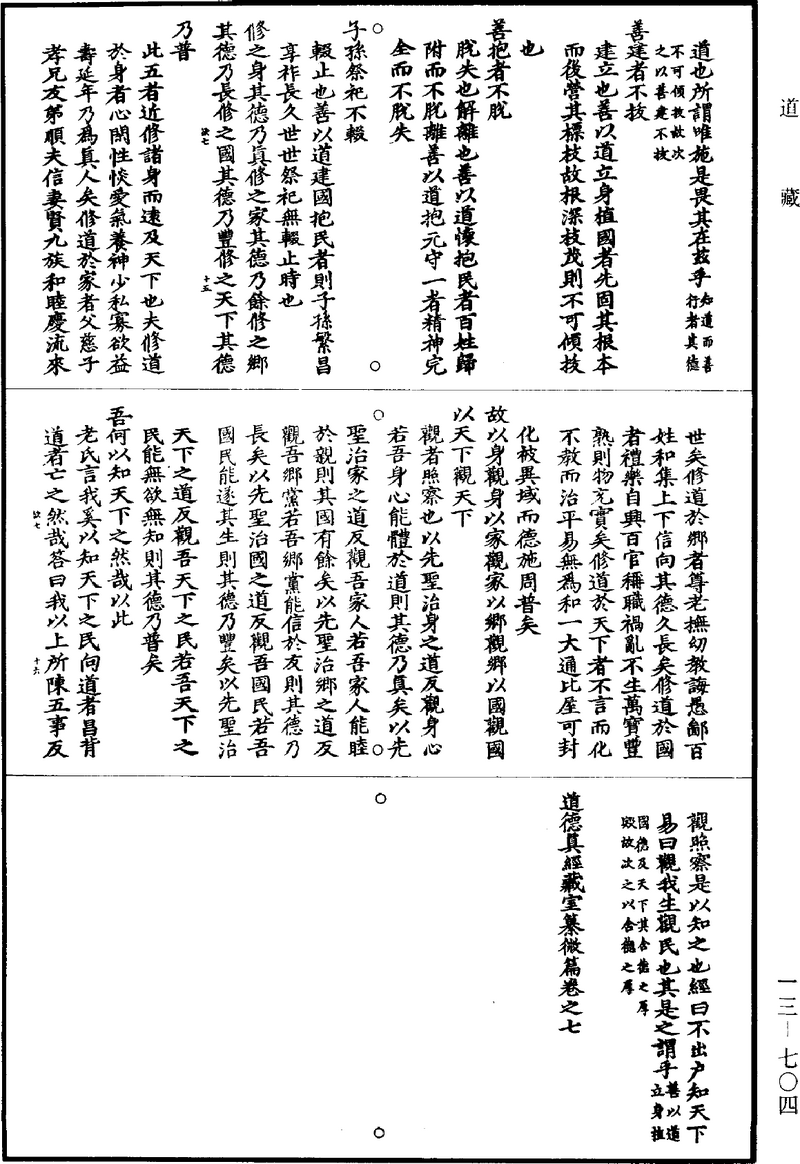 道藏
道也所謂唯施是畏其在茲乎知道而善行者其德
不可傾拔故次之以善建不拔
善建者不拔
建立也善以道立身植國者先固其根本
而後營其標枝故根深枝茂則不可傾拔
也
善抱者不脫
脫失也解離也善以道懷抱民者百姓歸
附而不脫離善以道抱元守一者精神完
全而不脫失
子孫祭祀不輟
輟止也善以道建國抱民者則子孫繁昌
享祚長久世世祭祀無輟止時也
修之身其德乃真修之家其德乃餘修之鄉
其德乃長修之國其德乃豐修之天下其德
乃普
此五者近修諸身而遠及天下也夫修道
於身者心閑性惔愛氣養神少私寡欲益
壽延年乃為真人矣修道於家者父慈子
孝兄友弟順夫信妻賢九族和睦慶流來
世矣修道於鄉者尊老撫幼教誨愚鄙百
姓和集上下信向其德久長矣修道於國
者禮樂自興百官稱職禍亂不生萬寶豐
熟則物充實矣修道於天下者不言而化
不教而治平易無為和一大通比屋可封
化被異域而德施周普矣
故以身觀身以家觀家以鄉觀鄉以國觀國
以天下觀天下
觀者照察也以先聖治身之道反觀身心
若吾身心能體於道則其德乃真矣以先
聖治家之道反觀吾家人若吾家人能睦
於親則其國有餘矣以先聖治鄉之道反
觀吾鄉黨若吾鄉黨能信於友則其德乃
長矣以先聖治國之道反觀吾國民若吾
國民能遂其生則其德乃豐矣以先聖治
天下之道反觀吾天下之民若吾天下之
民能無欲無知則其德乃普矣
吾何以知天下之然哉以此
老氏言我奚以知天下之民向道者昌背
道者亡之然哉答曰我以上所陳五事反
觀照察是以知之也經曰不出戶知天下
易曰觀我生觀民也其是之謂乎善以道立身植
國德及天下其含德之厚
故次之以含德之厚
道德真經藏室纂微篇卷之七
十五
十六
一三－七〇四